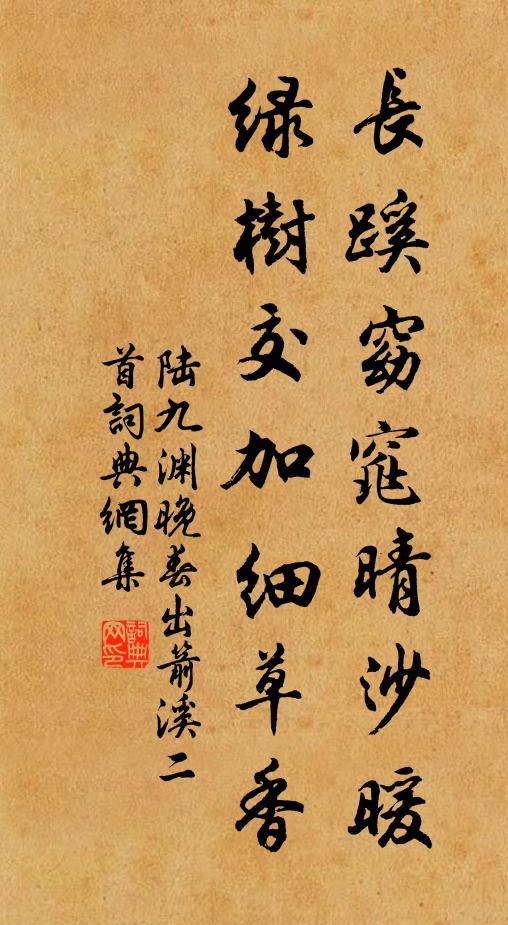 長蹊窈窕晴沙暖
綠樹交加細草香
陸九淵晚春出箭溪二
首詞典網集
詞典
网印